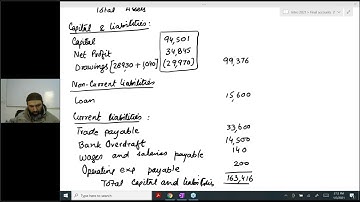 Total Assets
Capital & Liabilities:
Capital 94,501
Net Profit 34,845
Drawings [28930 + 1040] (29,970) 99,376
Non-Current Liabilities
Loan 15,600
Current Liabilities:
Trade payable 33,600
Bank Overdraft 14,500
Wages and salaries payable 140
Operating exp payable 200
Total Capital and liabilities 163,416